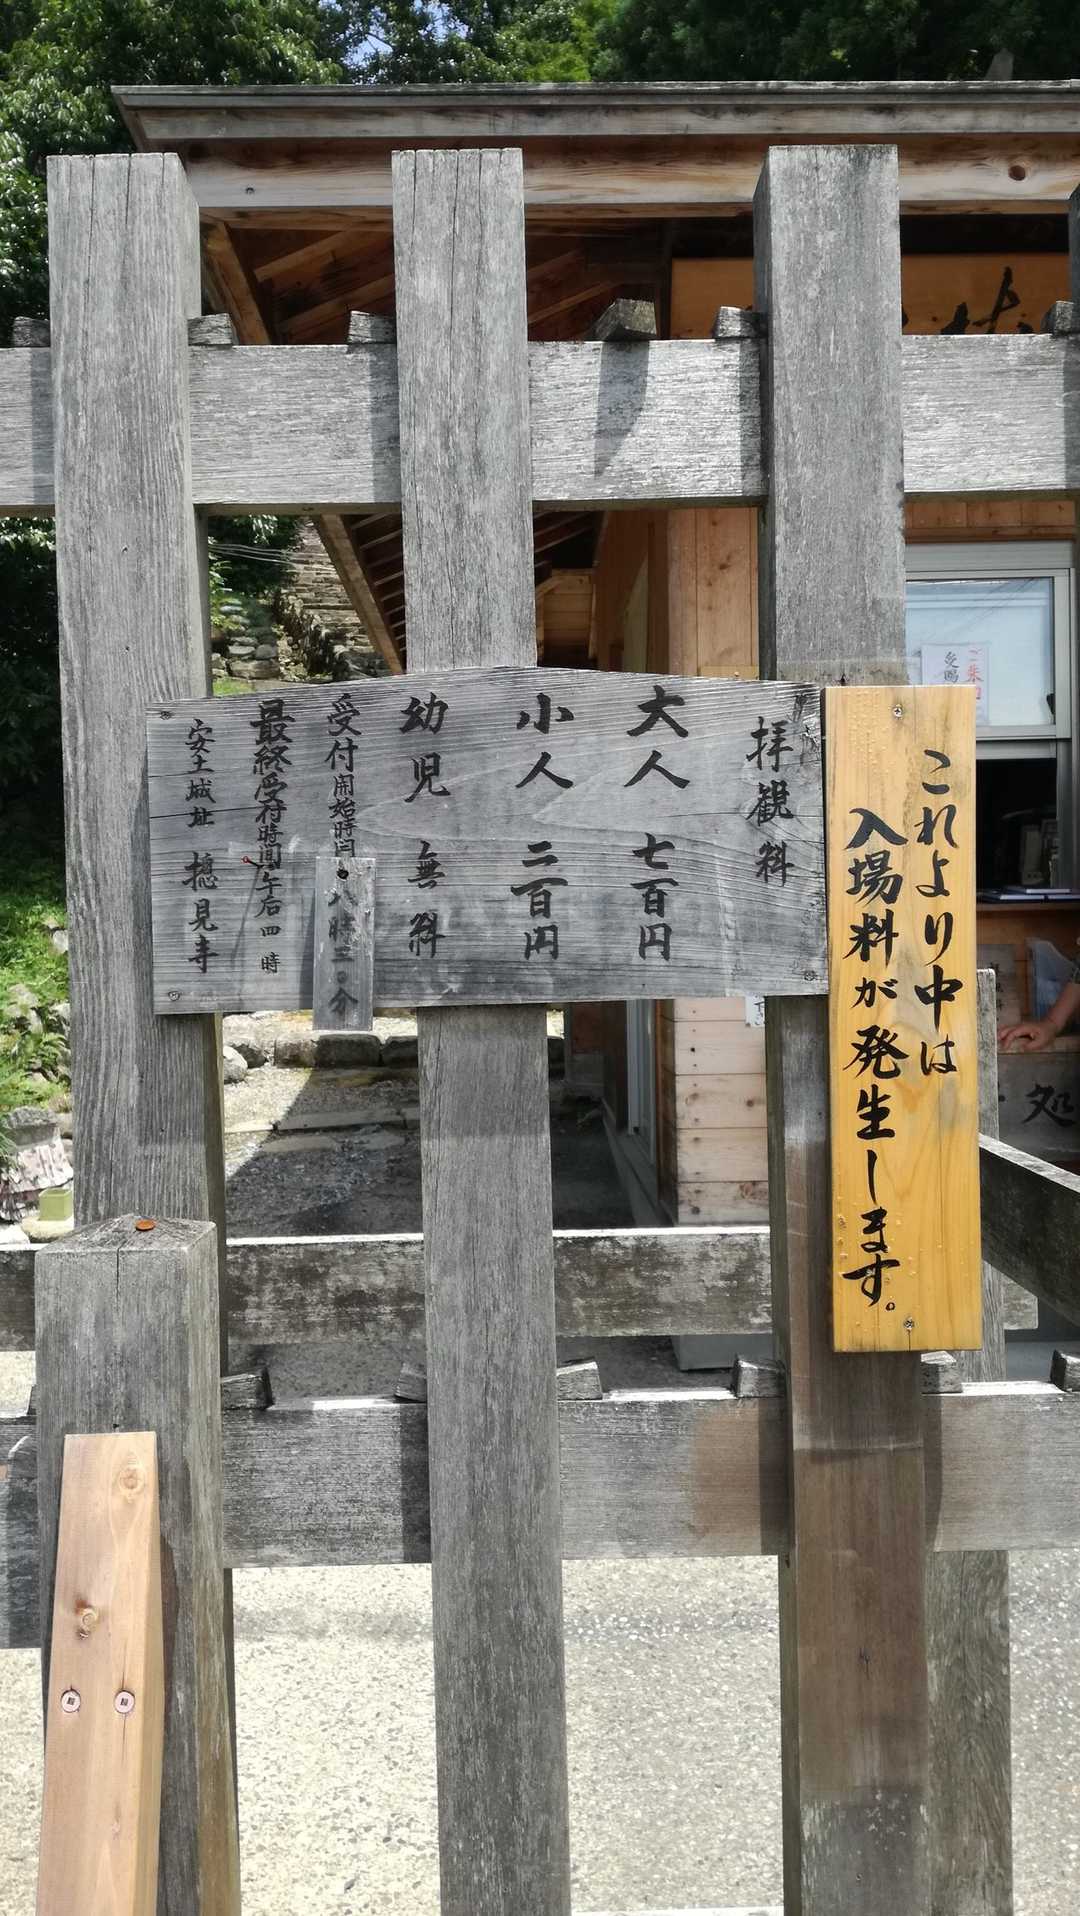 これより中は
入場料が発生します。
拝観料
大人 七百円
小人 二百円
幼児 無料
受付開始時間 八時三〇分
最終受付時間 午后四時
安土城址 摠見寺
ご朱印
処